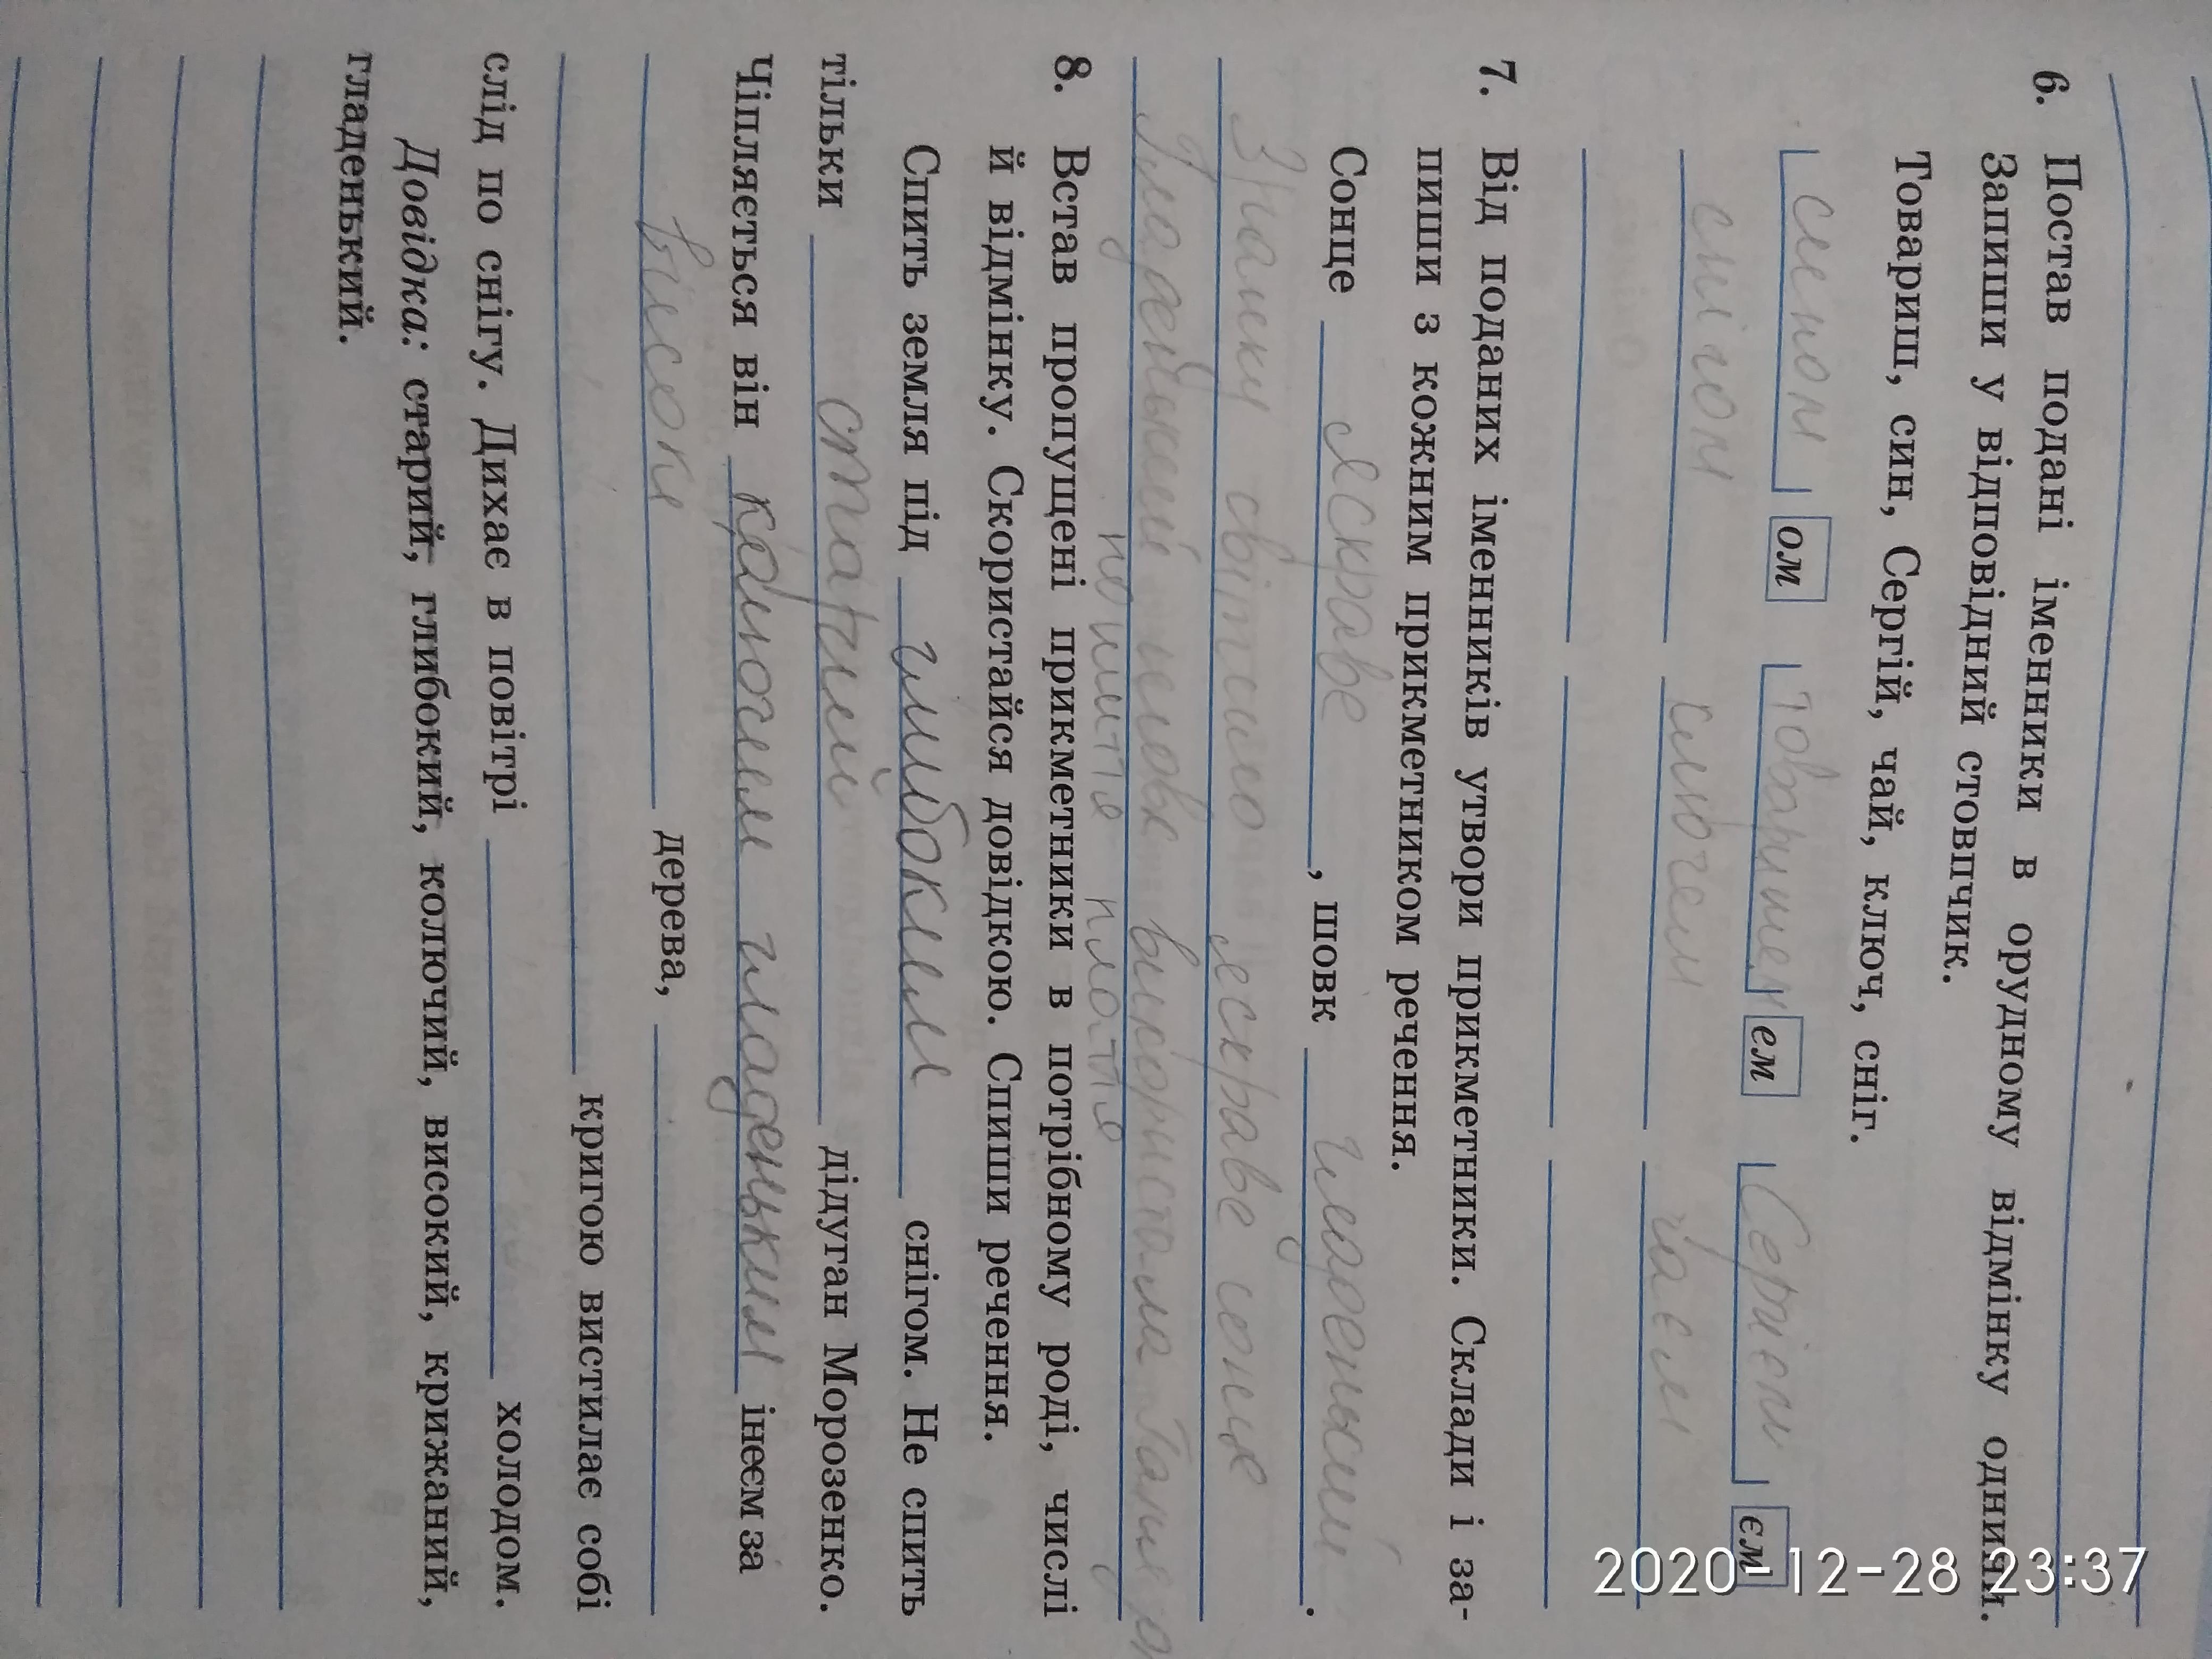 6. Постав подані іменники в орудному відмінку однини.
Запиши у відповідний стовпчик.
Товариш, син, Сергій, чай, ключ, сніг.
сином ом Товаришем ем Сергієм єм
снігом ключем чаєм
7. Від поданих іменників утвори прикметники. Склади і за-
пиши з кожним прикметником речення.
Сонце яскраве, шовк гладенький.
Знанку світило яскраве сонце
Гладенький шовк використала Таня для
пошиття плаття
8. Встав пропущені прикметники в потрібному роді, числі
й відмінку. Скористайся довідкою. Спиши речення.
Спить земля під глибоким снігом. Не спить
тільки старий дідуган Морозенко.
Чіпляється він колючим гладеньким інеєм за
високі дерева,
кригою вистилає собі
слід по снігу. Дихає в повітрі холодом.
Довідка: старий, глибокий, колючий, високий, крижаний,
гладенький.
2020-12-28 23:37